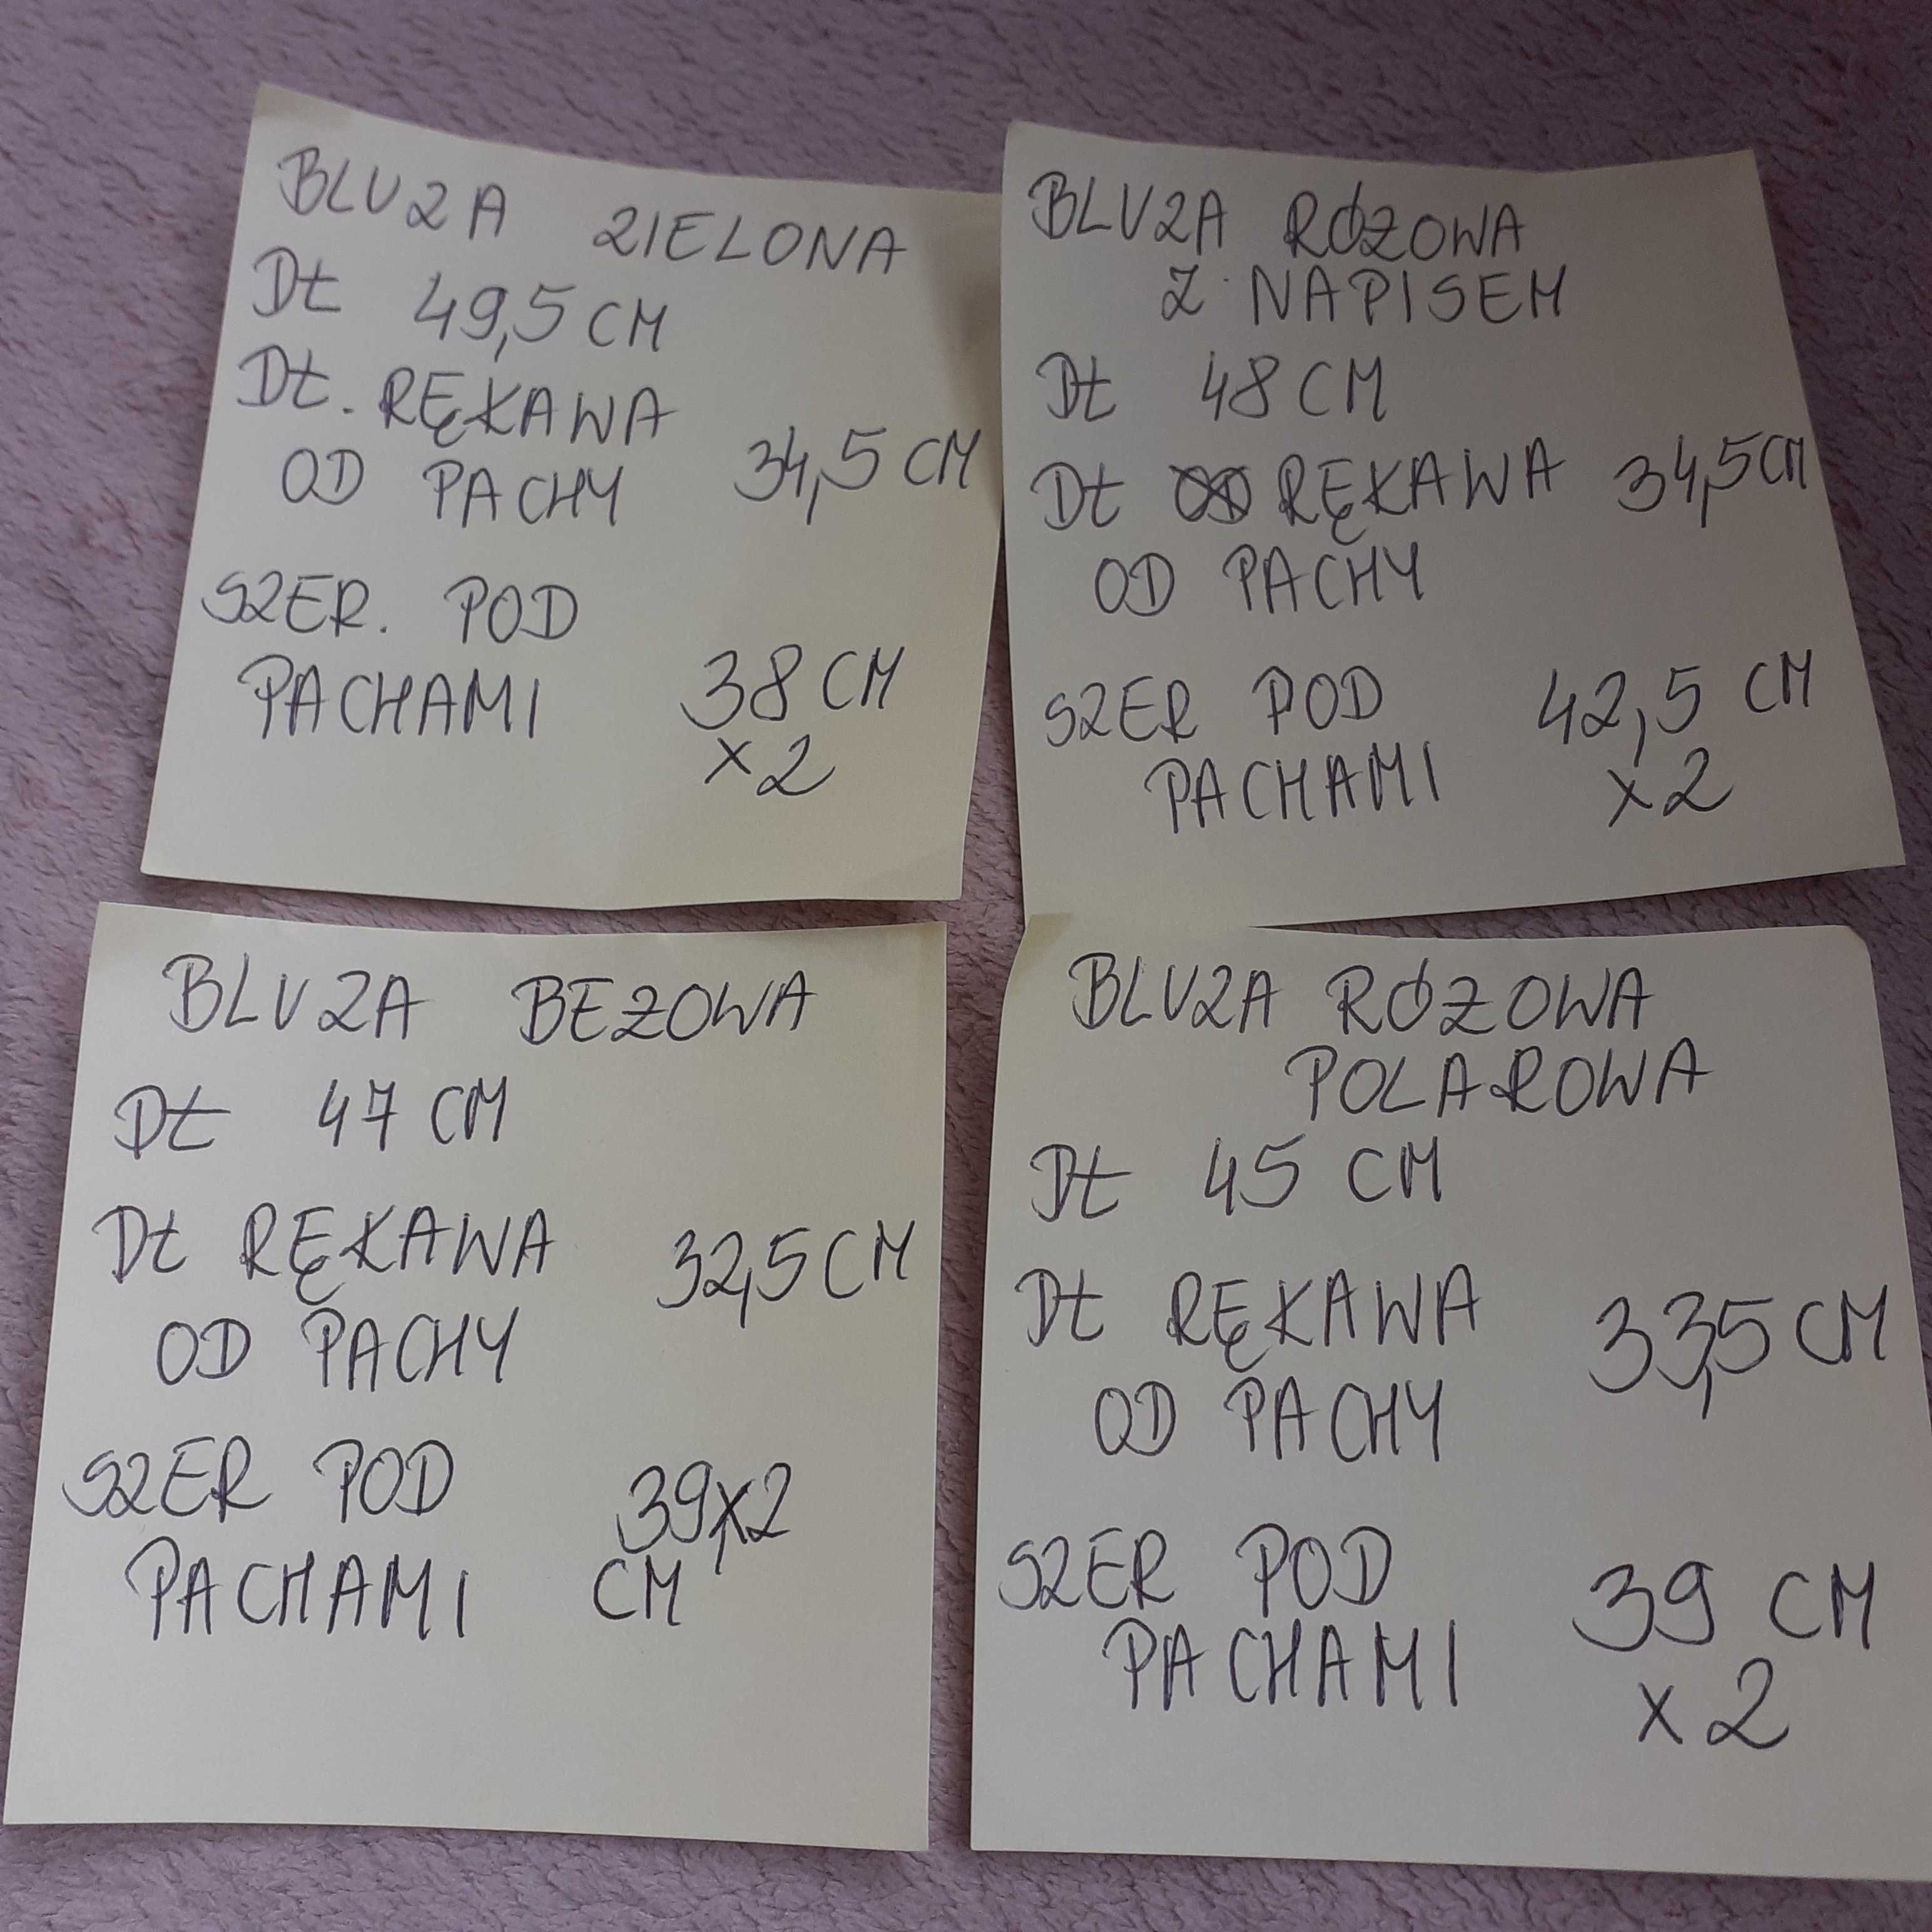 BLUZA ZIELONA
Dł 49,5 CM
Dł. RĘKAWA
OD PACHY 34,5 CM
SZER. POD
PACHAMI 38 CM
x2
BLUZA RÓŻOWA
Z NAPISEM
Dł 48 CM
Dł RĘKAWA 34,5 CM
OD PACHY
SZER POD 42,5 CM
PACHAMI x2
BLUZA BEŻOWA
Dł 47 CM
Dł RĘKAWA 32,5 CM
OD PACHY
SZER POD 39x2
PACHAMI CM
BLUZA RÓŻOWA
POLAROWA
Dł 45 CM
Dł RĘKAWA 33,5 CM
OD PACHY
SZER POD 39 CM
PACHAMI x2